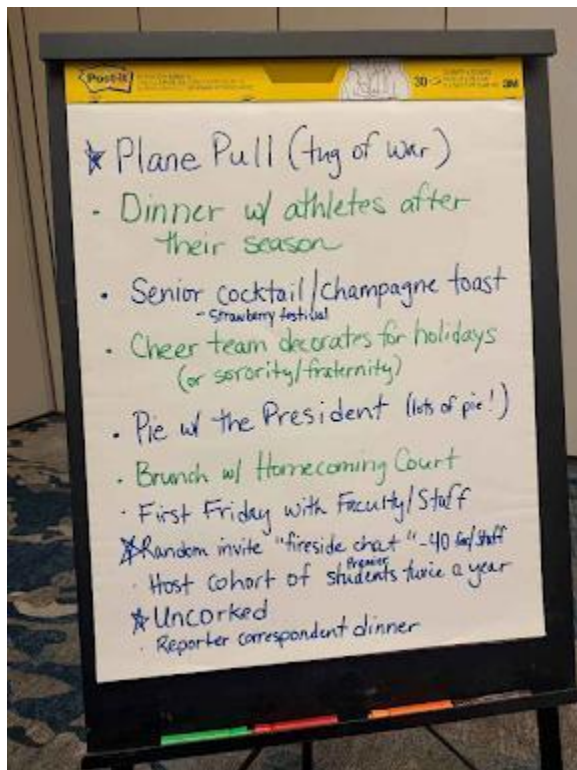 Post-it
30
3M
Plane Pull (tug of war)
Dinner w/ athletes after
their season
Senior cocktail/champagne toast
- Strawberry festival
Cheer team decorates for holidays
(or sorority/fraternity)
Pie w/ the President (lots of pie!)
Brunch w/ Homecoming Court
First Friday with Faculty/Staff
Random invite "fireside chat" -40 fac/staff
Premier
Host cohort of students twice a year
Uncorked
Reporter correspondent dinner